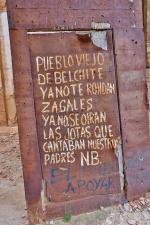 PUEBLO VIEJO
DE BELCHITE
YA NO TE RONDAN
ZAGALES
YA NO SE OIRAN
LAS JOTAS QUE
CANTABAN NUESTROS
PADRES N.B.
EL
APOYAR